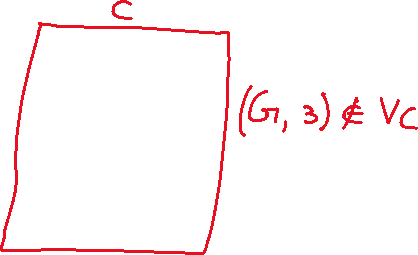 C
(G, 3) ∉ VC